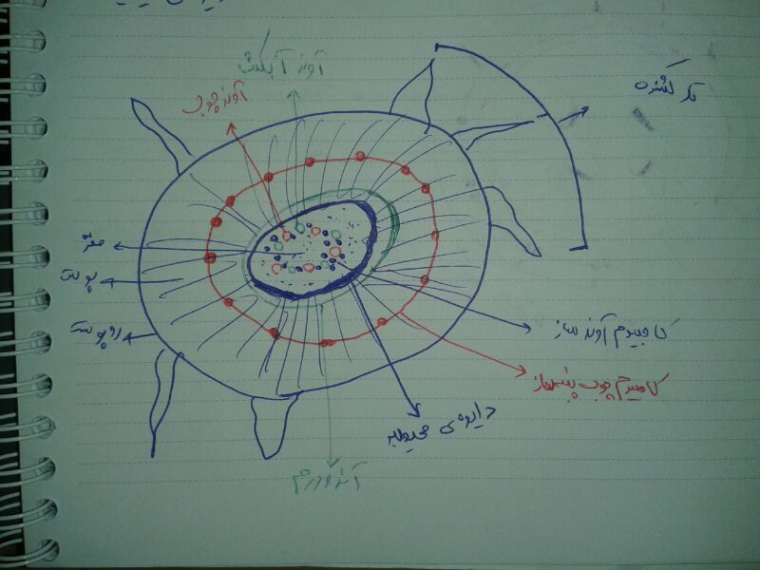 آوند آبکش
آوند چوب
تار کشنده
مغز
پوست
روپوست
کامبیوم آوند ساز
کامبیوم چوب پنبه ساز
دایره ی محیطیه
آندودرم